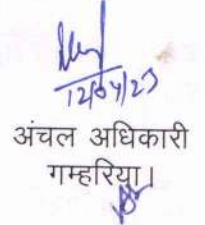 12/04/23
अंचल अधिकारी
गम्हरिया।